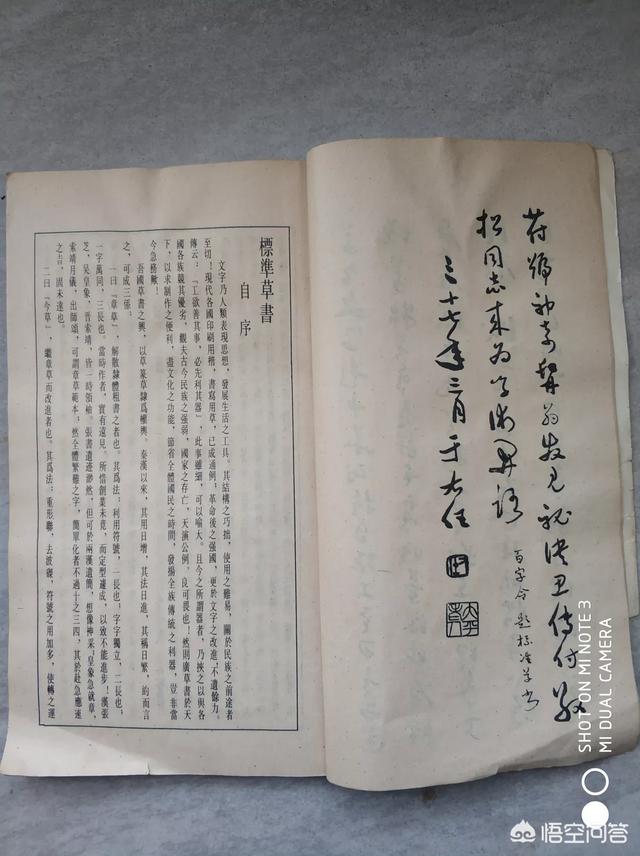 符號神奇髯翁發見秘訣傳付
松同志來為學術開路
三十七年三月于右任
百字令 題標準草書
標準草書
自序
文字乃人類表現思想,發展生活之工具。其結構之巧拙,使用之難易,關於民族之前途者
至切!現代各國印刷用楷,書寫用草,已成通例;革命後之强國,更於文字之改進,不遺餘力。
傳云:「工欲善其事,必先利其器」,此事雖細,可以喻大。且今之所謂器者,乃挾之以與各
國各族競其優劣,觀夫古今民族之强弱,國家之存亡,天演公例,良可畏也!然則廣草書於天
下,以求制作之便利,盡文化之功能,節省全體國民之時間,發揚全族傳統之利器,豈非當
今急務歟!
吾國草書之興,以草篆草隸爲權輿。秦漢以來,其用日增,其法日進,其稱日繁,約而言
之,可成三系:
一曰「章草」,解散隸體粗書之者也。其爲法:利用符號,一長也;字字獨立,二長也;
一字萬同,三長也。當時作者,實有遠見。所惜創業未竟,而定型遽成,以致不能進步!漢張
芝、吳皇象、晉索靖,皆一時領袖。張書遺迹渺然,但可於兩漢遺簡,想像神采;皇象急就章,
索靖月儀,出師頌,可謂章草範本;然全體繁難之字,簡單化者不過十之三四,其於赴急應速
之旨,固未達也。
二曰「今草」,繼章草而改進者也。其爲法:重形聯,去波磔,符號之用加多,使轉之運
SHOT ON MI NOTE 3
MI DUAL CAMERA
悟空问答